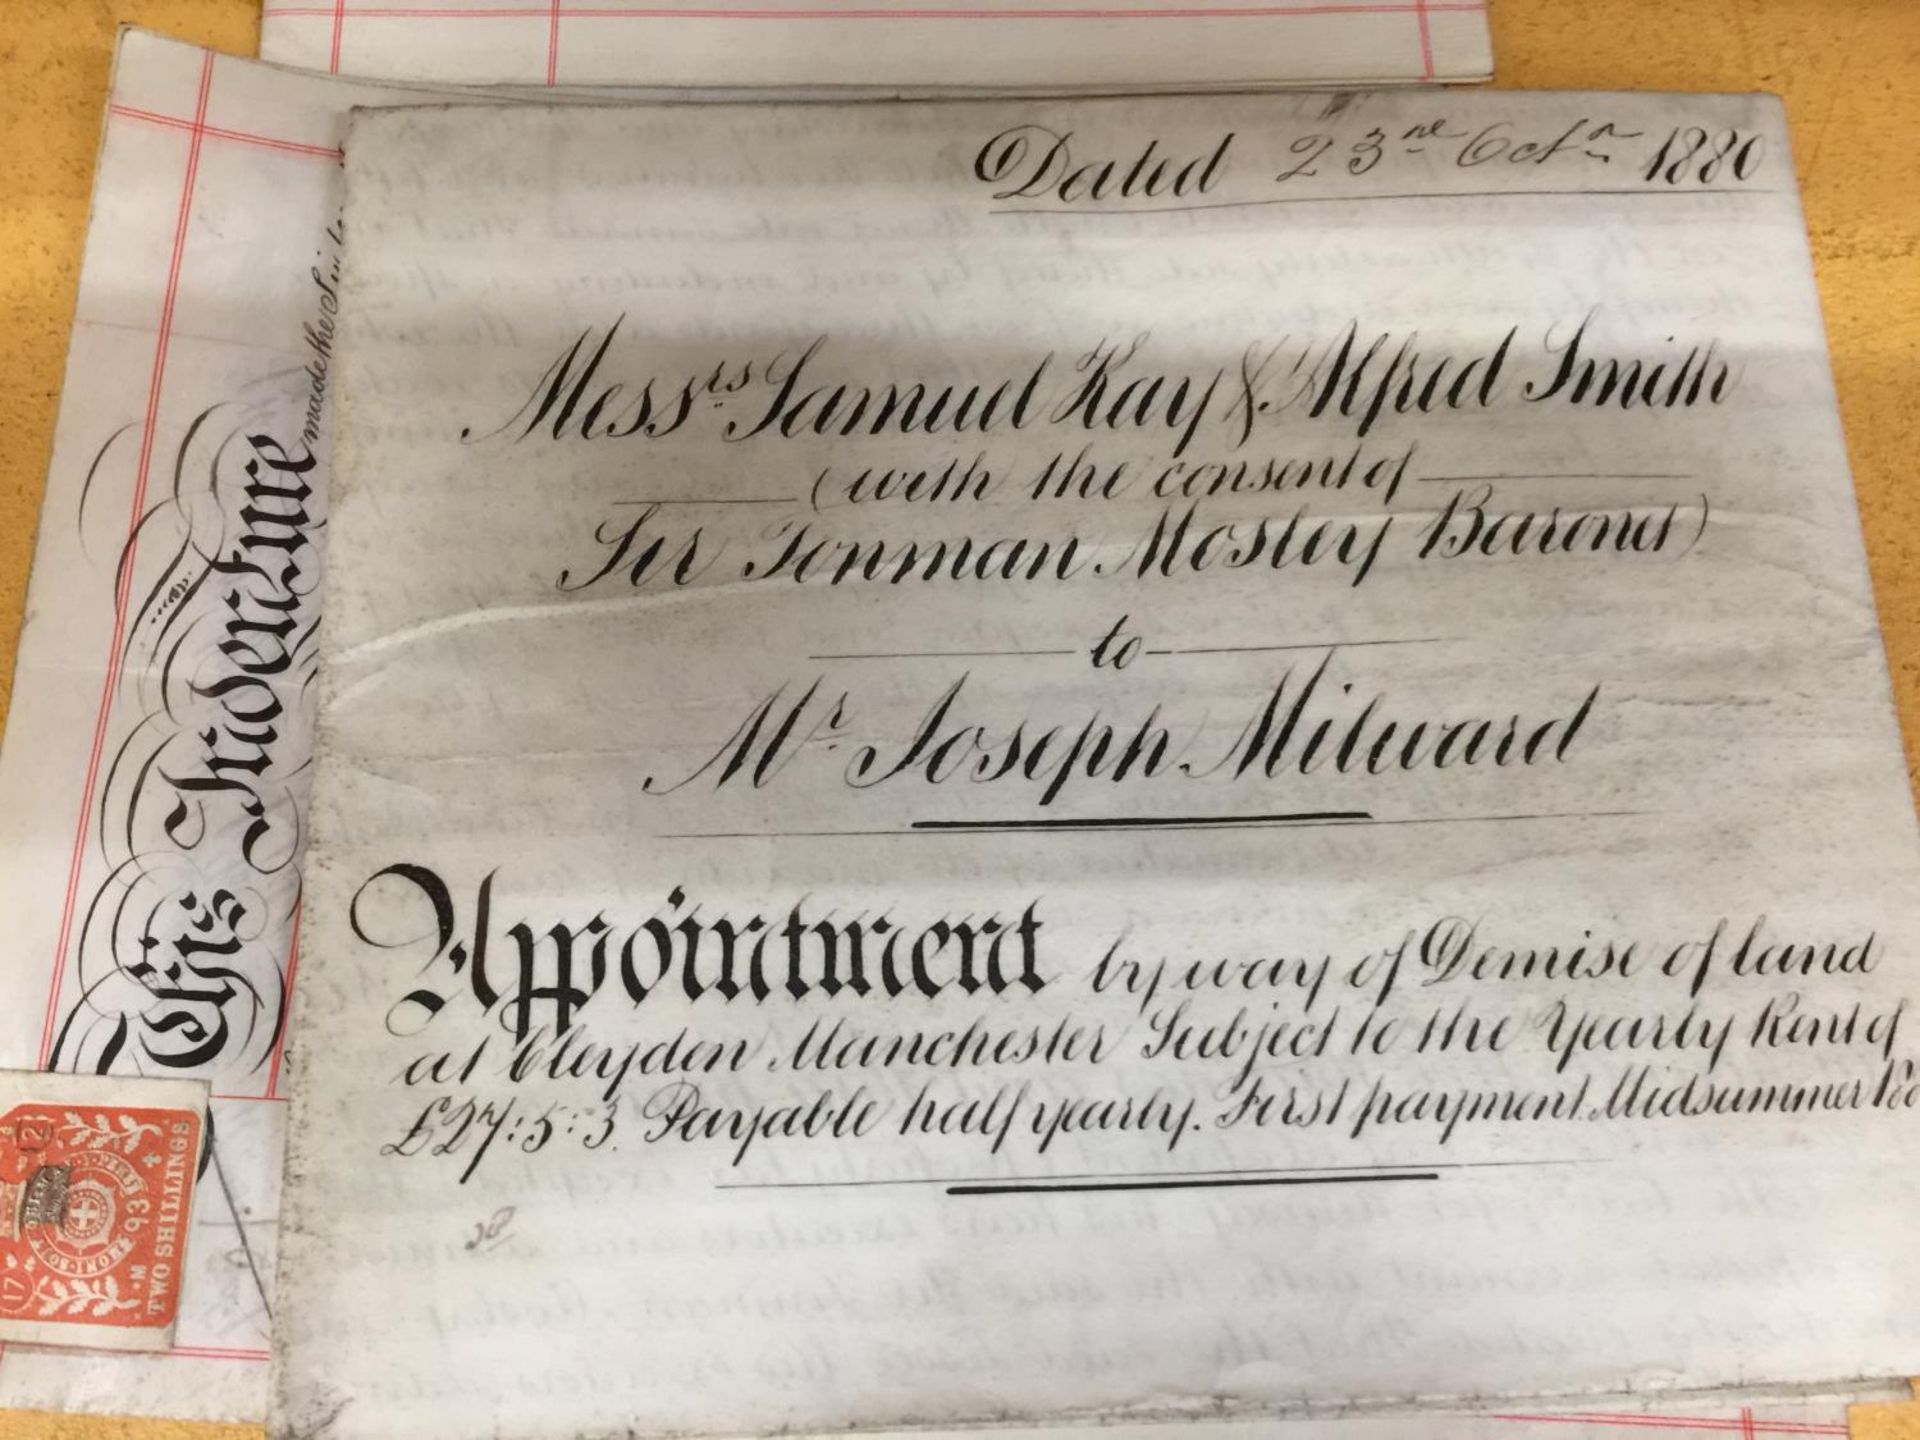 Dated 23rd Octr 1880
Messrs Samuel Kay & Alfred Smith
(with the consent of
Sir Tonman Mosley Baronet)
to
Mr Joseph Milward
Appointment by way of Demise of land
at Cleyden Manchester Subject to the Yearly Rent of
£27:5:3. Payable half yearly. First payment Midsummer
This Indenture
made the
TWO SHILLINGS